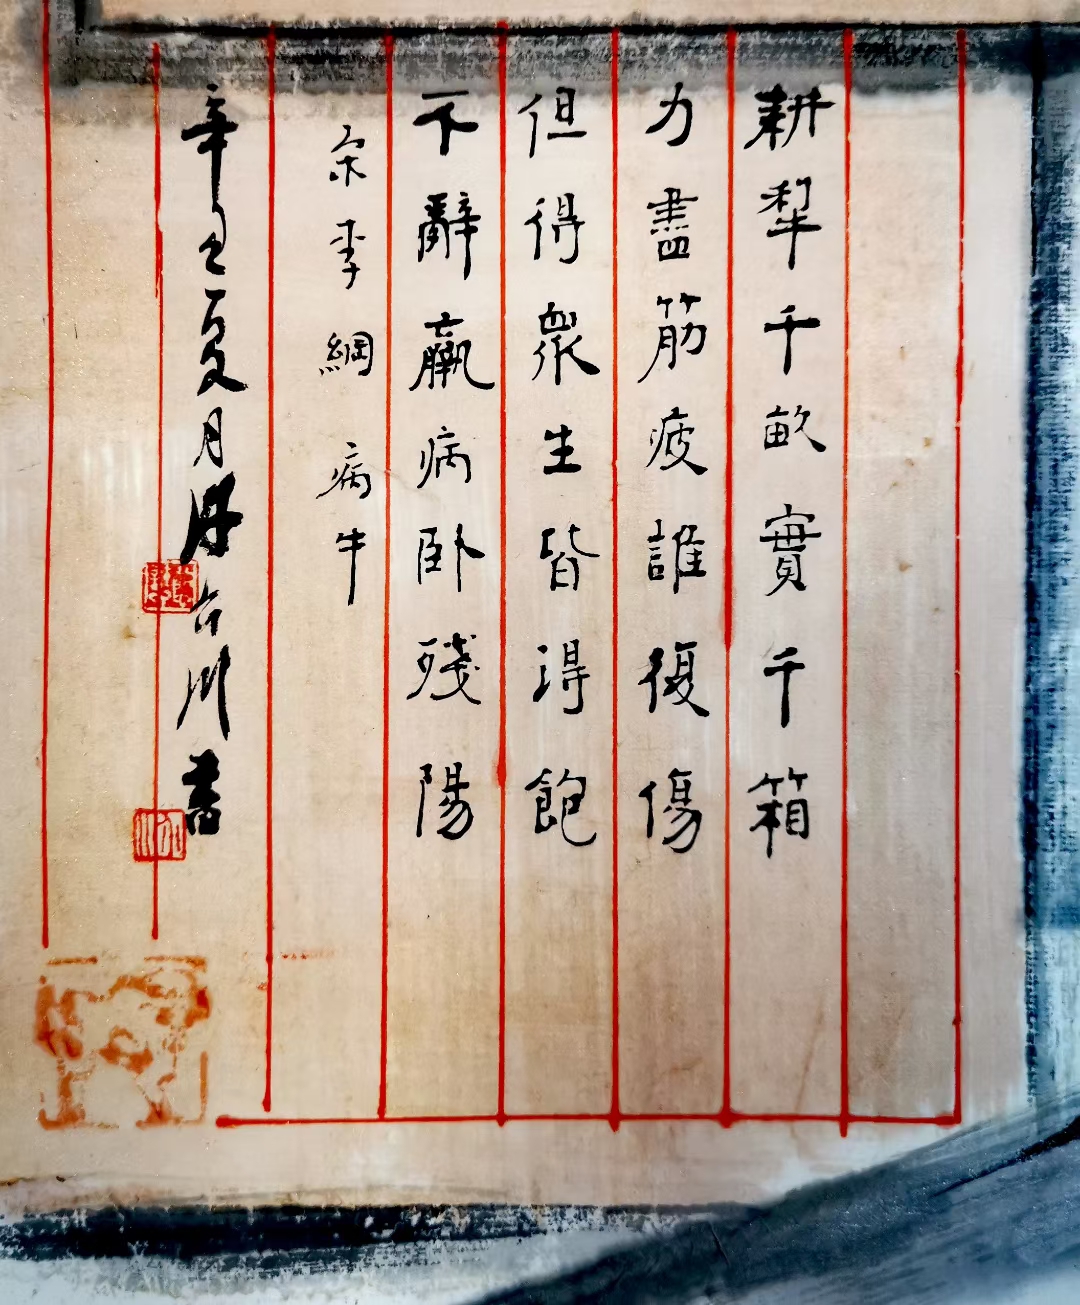 耕犂千畝實千箱
力盡筋疲誰復傷
但得眾生皆得飽
不辭羸病卧殘陽
宋李綱 病牛
辛丑夏月 川書